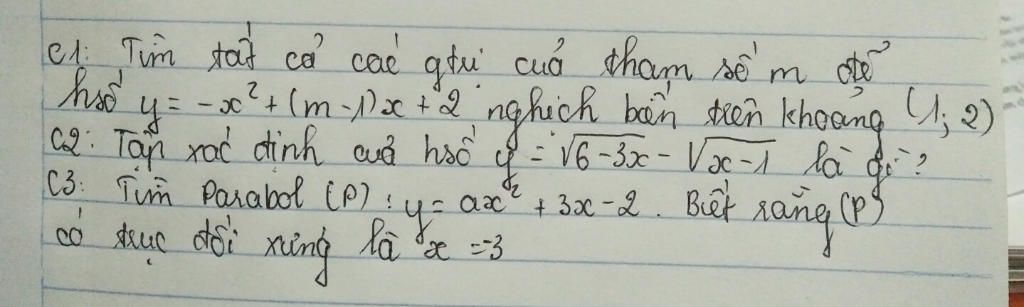 C1: Tìm tất cả các gtrị của tham số m để
hsố y = -x² + (m-1)x + 2 nghịch biến trên khoảng (1; 2)
C2: Tập xác định của hsố y = √(6-3x) - √(x-1) là gì?
C3: Tìm Parabol (P): y = ax² + 3x - 2. Biết rằng (P)
có trục đối xứng là x = -3